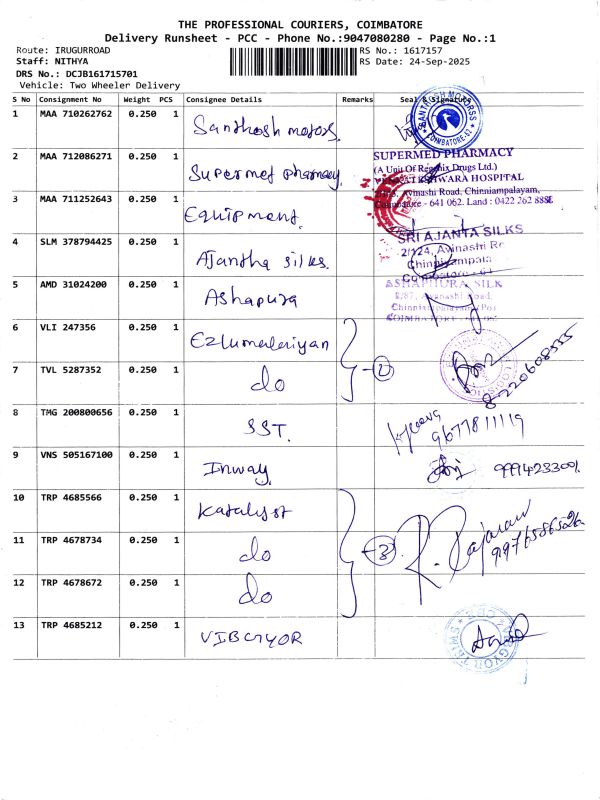 THE PROFESSIONAL COURIERS, COIMBATORE
Delivery Runsheet - PCC - Phone No.:9047080280 - Page No.:1
Route: IRUGURROAD
RS No.: 1617157
Staff: NITHYA
RS Date: 24-Sep-2025
DRS No.: DCJB161715701
Vehicle: Two Wheeler Delivery
S No Consignment No Weight PCS Consignee Details Remarks Seal & Signature
1 MAA 710262762 0.250 1 Santhosh motors.
SANTHOSH MOTORSS
COIMBATORE-62
2 MAA 712086271 0.250 1 Supermed pharmacy.
SUPERMED PHARMACY
(A Unit Of Regenix Drugs Ltd.)
HOSPITAL
Avinashi Road, Chinniampalayam,
Coimbatore - 641 062. Land : 0422 262 888
3 MAA 711252643 0.250 1 Equipment.
4 SLM 378794425 0.250 1 Ajantha silks.
SRI AJANTA SILKS
2/124, Avinashi Ro
Chinniyampala
5 AMD 31024200 0.250 1 Ashapura
ASHAPHURA SILK
2/87, Avanashi Road,
COIMBATORE
6 VLI 247356 0.250 1 Ezlumaleriyan
7 TVL 5287352 0.250 1 do
2
8220608535
8 TMG 200800656 0.250 1 SST.
9677811119
9 VNS 505167100 0.250 1 Inway.
10 TRP 4685566 0.250 1 Katalyst
11 TRP 4678734 0.250 1 do
3
R. Rajaram
9976586526
12 TRP 4678672 0.250 1 do
13 TRP 4685212 0.250 1 VIBGYOR